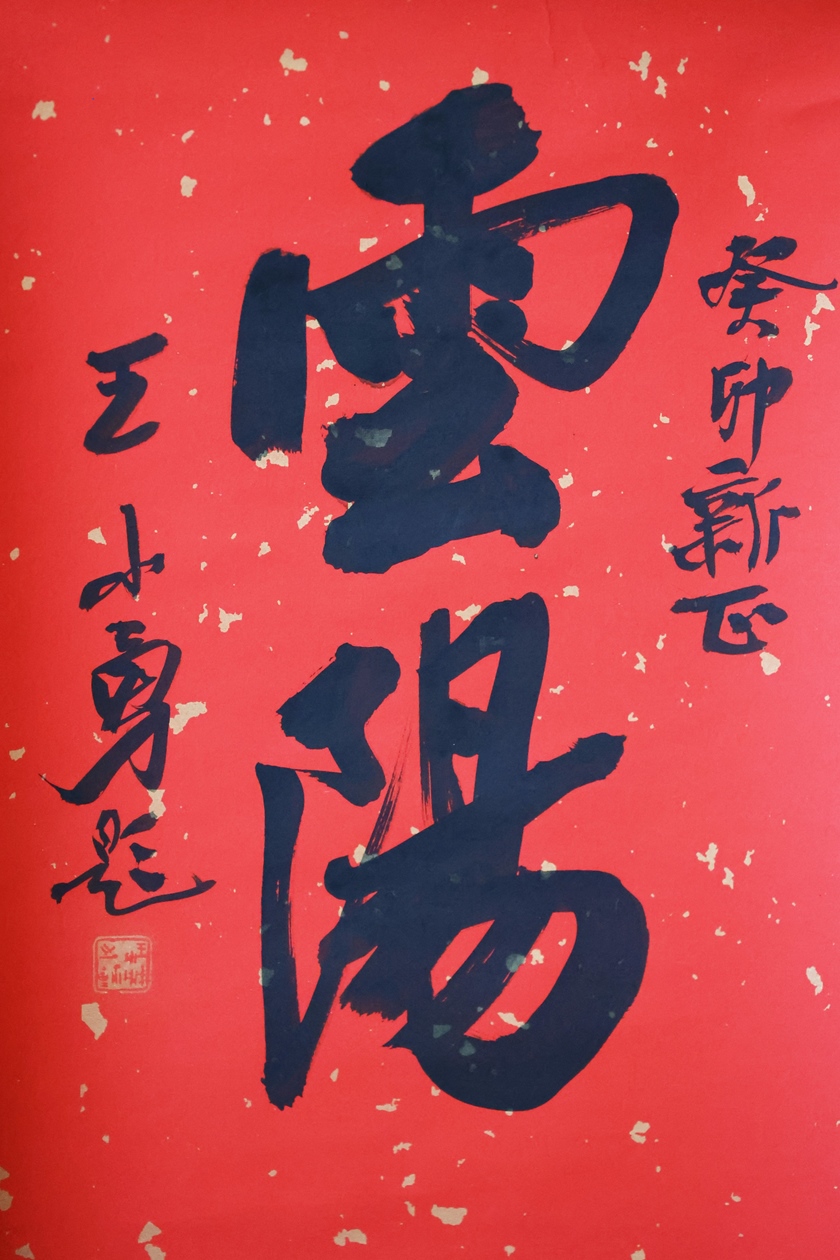 癸卯新正
雲陽
王小勇题